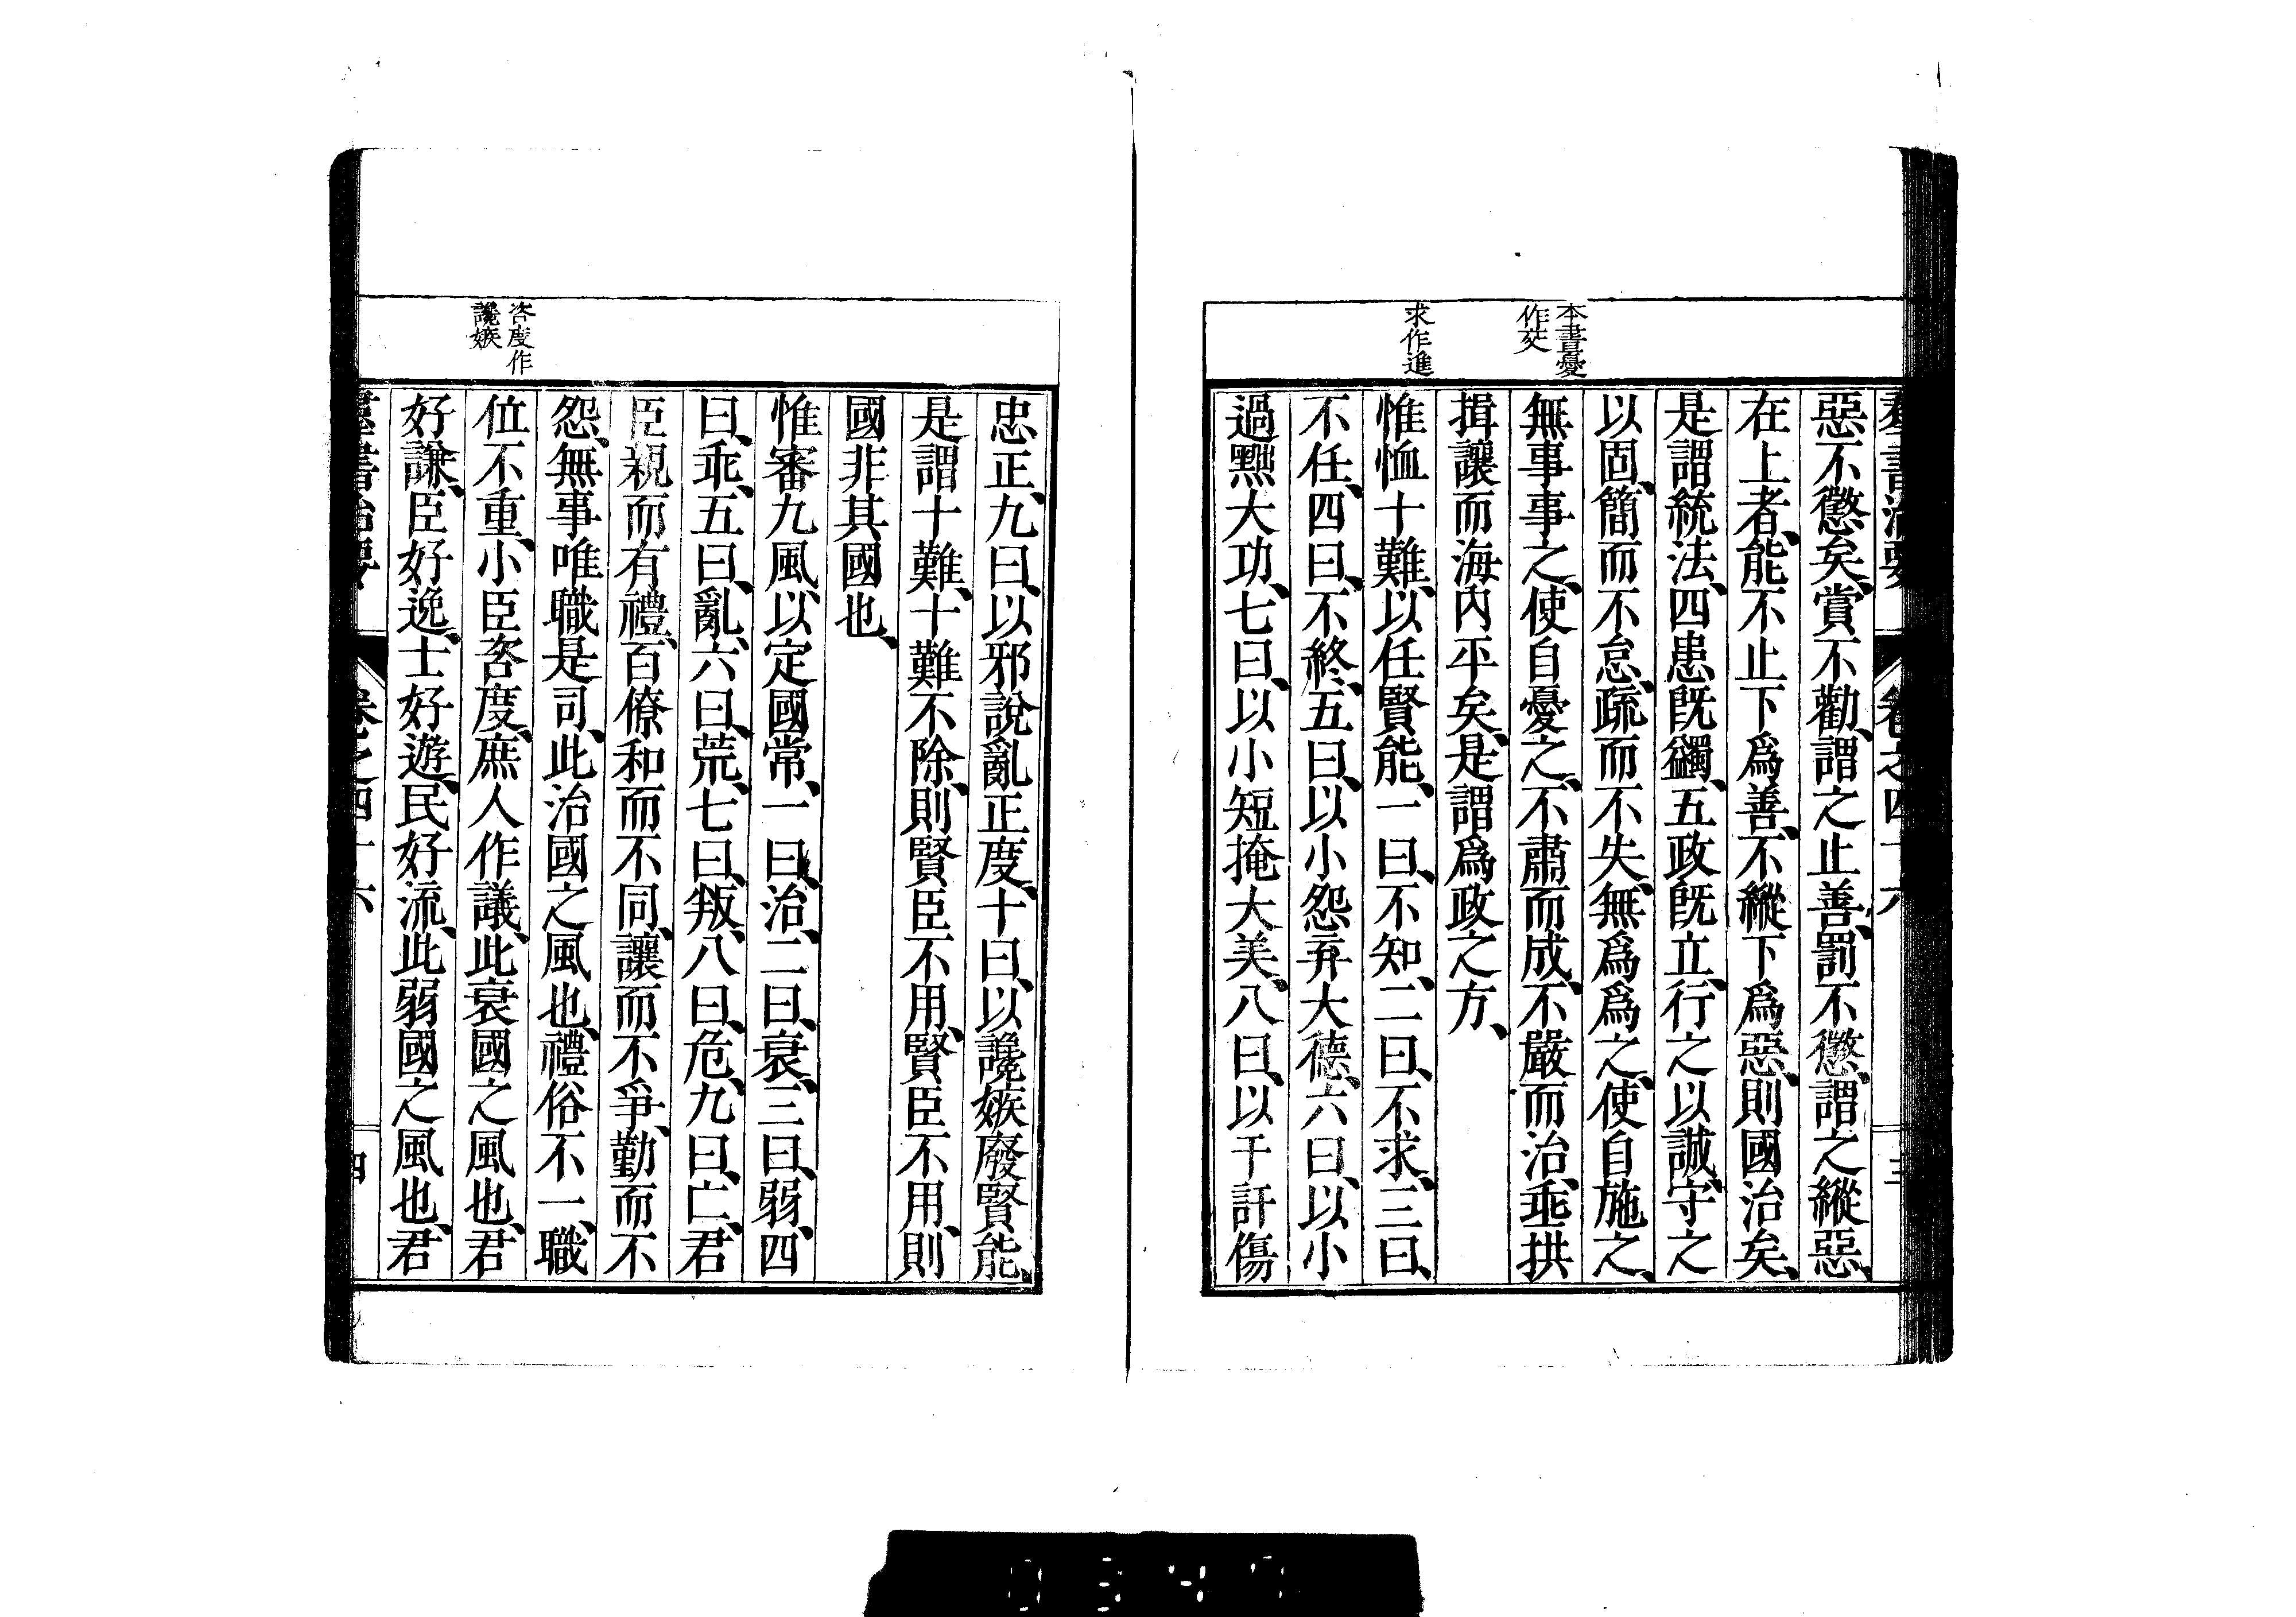 羣書治要 卷之四十六 三
本書憂
作交
求作進
惡不懲矣、賞不勸、謂之止善、罰不懲、謂之縱惡、
在上者、能不止下爲善、不縱下爲惡、則國治矣、
是謂統法、四患既蠲、五政既立、行之以誠、守之
以固、簡而不怠、疏而不失、無爲爲之、使自施之、
無事事之、使自憂之、不肅而成、不嚴而治、垂拱
揖讓而海内平矣、是謂爲政之方、
惟恤十難、以任賢能、一曰、不知、二曰、不求、三曰、
不任、四曰、不終、五曰、以小怨弃大德、六曰、以小
過黜大功、七曰、以小短掩大美、八曰、以干訐傷
忠正、九曰、以邪說亂正度、十曰、以讒嫉廢賢能、
是謂十難、十難不除、則賢臣不用、賢臣不用、則
國非其國也、
惟審九風、以定國常、一曰、治、二曰、衰、三曰、弱、四
曰、乖、五曰、亂、六曰、荒、七曰、叛、八曰、危、九曰、亡、君
臣親而有禮、百僚和而不同、讓而不爭、勤而不
怨、無事唯職是司、此治國之風也、禮俗不一、職
位不重、小臣咨度、庶人作議、此衰國之風也、君
好謙、臣好逸、士好遊、民好流、此弱國之風也、君
咨度作
讒嫉
羣書治要 卷之四十六 四